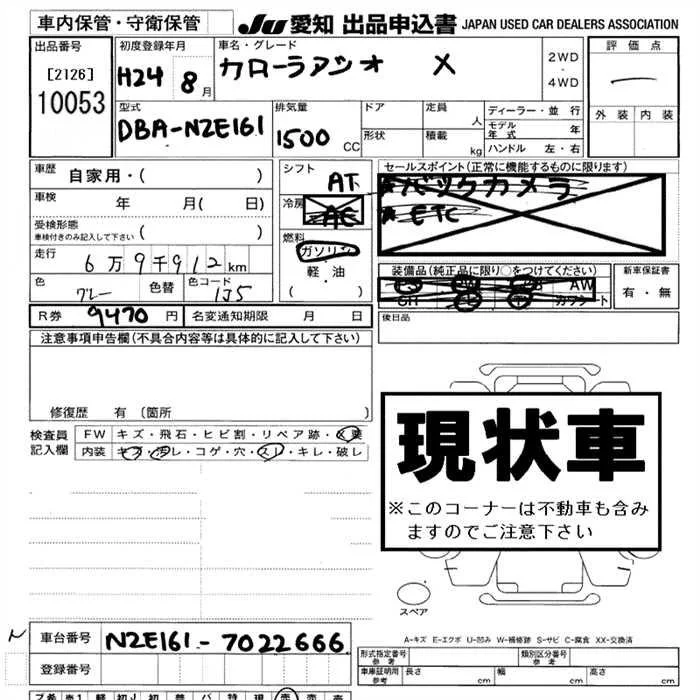 車内保管・守衛保管 JU 愛知 出品申込書 JAPAN USED CAR DEALERS ASSOCIATION
出品番号 初度登録年月 車名・グレード 評価点
[2126] H24 8月 カローラアシオ X 2WD・4WD
10053 外装 内装
型式 排気量 ドア 定員 人 ディーラー・並 行
DBA-NZE161 1500 CC 形状 積載 kg モデル年式 年
ハンドル 左・右
車歴 自家用・( ) シフト AT セールスポイント(正常に機能するものに限ります)
車検 年 月( 日) 冷房 AC バックカメラ
受検形態 車検付きのみ記入して下さい ( ) ETC
走行 6万9千912km 燃料 ガソリン
軽・油
( )
装備品(純正品に限り○をつけてください) 新車保証書
色 グレー 色替 色コード 1J5 PS PW AW 有・無
カワシート
R券 9470円 名変通知期限 月 日 後日品
注意事項申告欄(不具合内容等は具体的に記入して下さい)
修復歴 有 (箇所 )
検査員 FW キズ・飛石・ヒビ割・リペア跡・
記入欄 内装 キズ・汚レ・コゲ・穴・スレ・キレ・破レ
現状車
※このコーナーは不動車も含み
ますのでご注意下さい
スペア
A-キズ E-エクボ U-凹み W-補修跡 S-サビ C-腐食 XX-交換済
車台番号 NZE161-7022666
登録番号
形式指定番号 参考 類別区分番号 参考
車庫証明用 参考 長さ cm 幅 cm 高さ cm